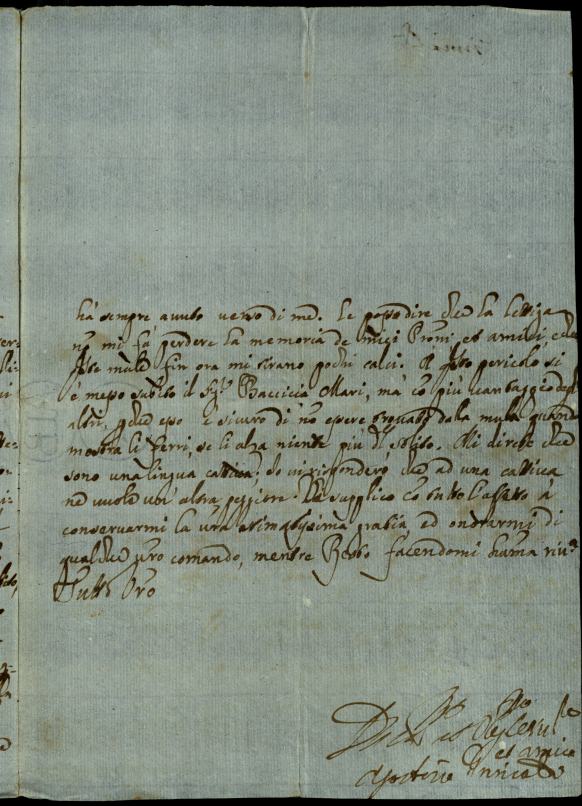 ha sempre avuto verso di me. Le posso dire che la lettiga
nō mi fà perdere la memoria de miei Proñi et amici che
qste mule fin ora mi tirano pochi calci. A qsto pericolo si
è messo subito il Sigr Baciccia Mari, mà cō più vantaggio degl
altri, esso è sicuro di nō essere trovato dala mula quando
mostra li ferri, se li alza niente più del solito. Mi direte che
sono una lingua cattiva; Io vi risponderò che ad una cattiva
ne vuole un' altra peggiore. La supplico cō tutto l'affetto à
conservarmi la vra stimatissima grazia ed onorarmi di
qualche vro comando, mentre Resto facendomi riva
Tutto Vro
et amico
Agostino